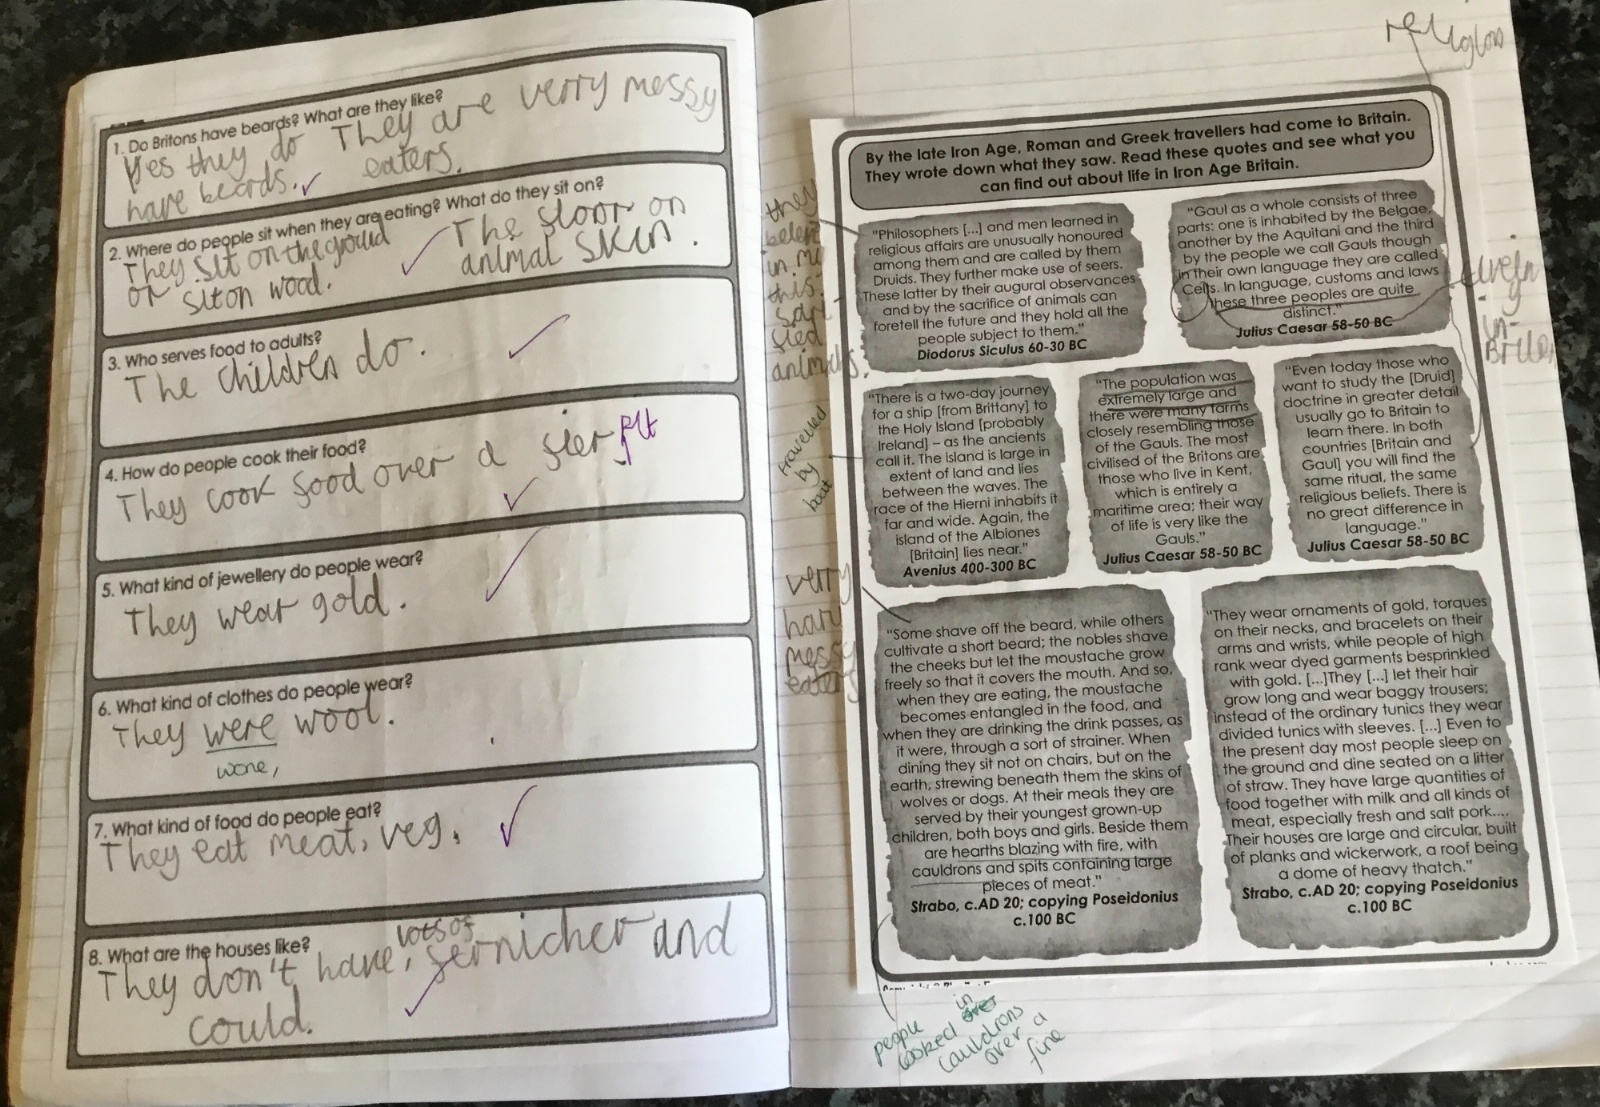 1. Do Britons have beards? What are they like?
Yes they do They are verry messy
have beards. eaters.
2. Where do people sit when they are eating? What do they sit on?
They sit on the ground The floor on
or sit on wood. animal skin.
3. Who serves food to adults?
The children do.
4. How do people cook their food?
They cook food over a fier.
5. What kind of jewellery do people wear?
They wear gold.
6. What kind of clothes do people wear?
They were wool.
7. What kind of food do people eat?
They eat meat, veg.
8. What are the houses like?
lots of
They don't have, fernicher and
could.
religion
By the late Iron Age, Roman and Greek travellers had come to Britain.
They wrote down what they saw. Read these quotes and see what you
can find out about life in Iron Age Britain.
"Philosophers [...] and men learned in
religious affairs are unusually honoured
among them and are called by them
Druids. They further make use of seers.
These latter by their augural observances
and by the sacrifice of animals can
foretell the future and they hold all the
people subject to them."
Diodorus Siculus 60-30 BC
"Gaul as a whole consists of three
parts: one is inhabited by the Belgae,
another by the Aquitani and the third
by the people we call Gauls though
in their own language they are called
Celts. In language, customs and laws
these three peoples are quite
distinct."
Julius Caesar 58-50 BC
they
in
this.
animals.
"There is a two-day journey
for a ship [from Brittany] to
the Holy Island [probably
Ireland] – as the ancients
call it. The island is large in
extent of land and lies
between the waves. The
race of the Hierni inhabits it
far and wide. Again, the
island of the Albiones
[Britain] lies near."
Avenius 400-300 BC
travelled
by
boat
"The population was
extremely large and
there were many farms
closely resembling those
of the Gauls. The most
civilised of the Britons are
those who live in Kent,
which is entirely a
maritime area; their way
of life is very like the
Gauls."
Julius Caesar 58-50 BC
"Even today those who
want to study the [Druid]
doctrine in greater detail
usually go to Britain to
learn there. In both
countries [Britain and
Gaul] you will find the
same ritual, the same
religious beliefs. There is
no great difference in
language."
Julius Caesar 58-50 BC
verry
hary
messy
eaters
"Some shave off the beard, while others
cultivate a short beard; the nobles shave
the cheeks but let the moustache grow
freely so that it covers the mouth. And so,
when they are eating, the moustache
becomes entangled in the food, and
when they are drinking the drink passes, as
it were, through a sort of strainer. When
dining they sit not on chairs, but on the
earth, strewing beneath them the skins of
wolves or dogs. At their meals they are
served by their youngest grown-up
children, both boys and girls. Beside them
are hearths blazing with fire, with
cauldrons and spits containing large
pieces of meat."
Strabo, c.AD 20; copying Poseidonius
c.100 BC
"They wear ornaments of gold, torques
on their necks, and bracelets on their
arms and wrists, while people of high
rank wear dyed garments besprinkled
with gold. [...]They [...] let their hair
grow long and wear baggy trousers;
instead of the ordinary tunics they wear
divided tunics with sleeves. [...] Even to
the present day most people sleep on
the ground and dine seated on a litter
of straw. They have large quantities of
food together with milk and all kinds of
meat, especially fresh and salt pork....
Their houses are large and circular, built
of planks and wickerwork, a roof being
a dome of heavy thatch."
Strabo, c.AD 20; copying Poseidonius
c.100 BC
people in
cooked over
cauldrons
over a
fire